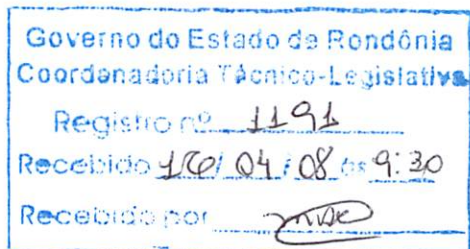 Governo do Estado de Rondônia
Coordenadoria Técnico-Legislativa
Registro nº 1191
Recebido 16/ 04 / 08 às 9:30
Recebido por